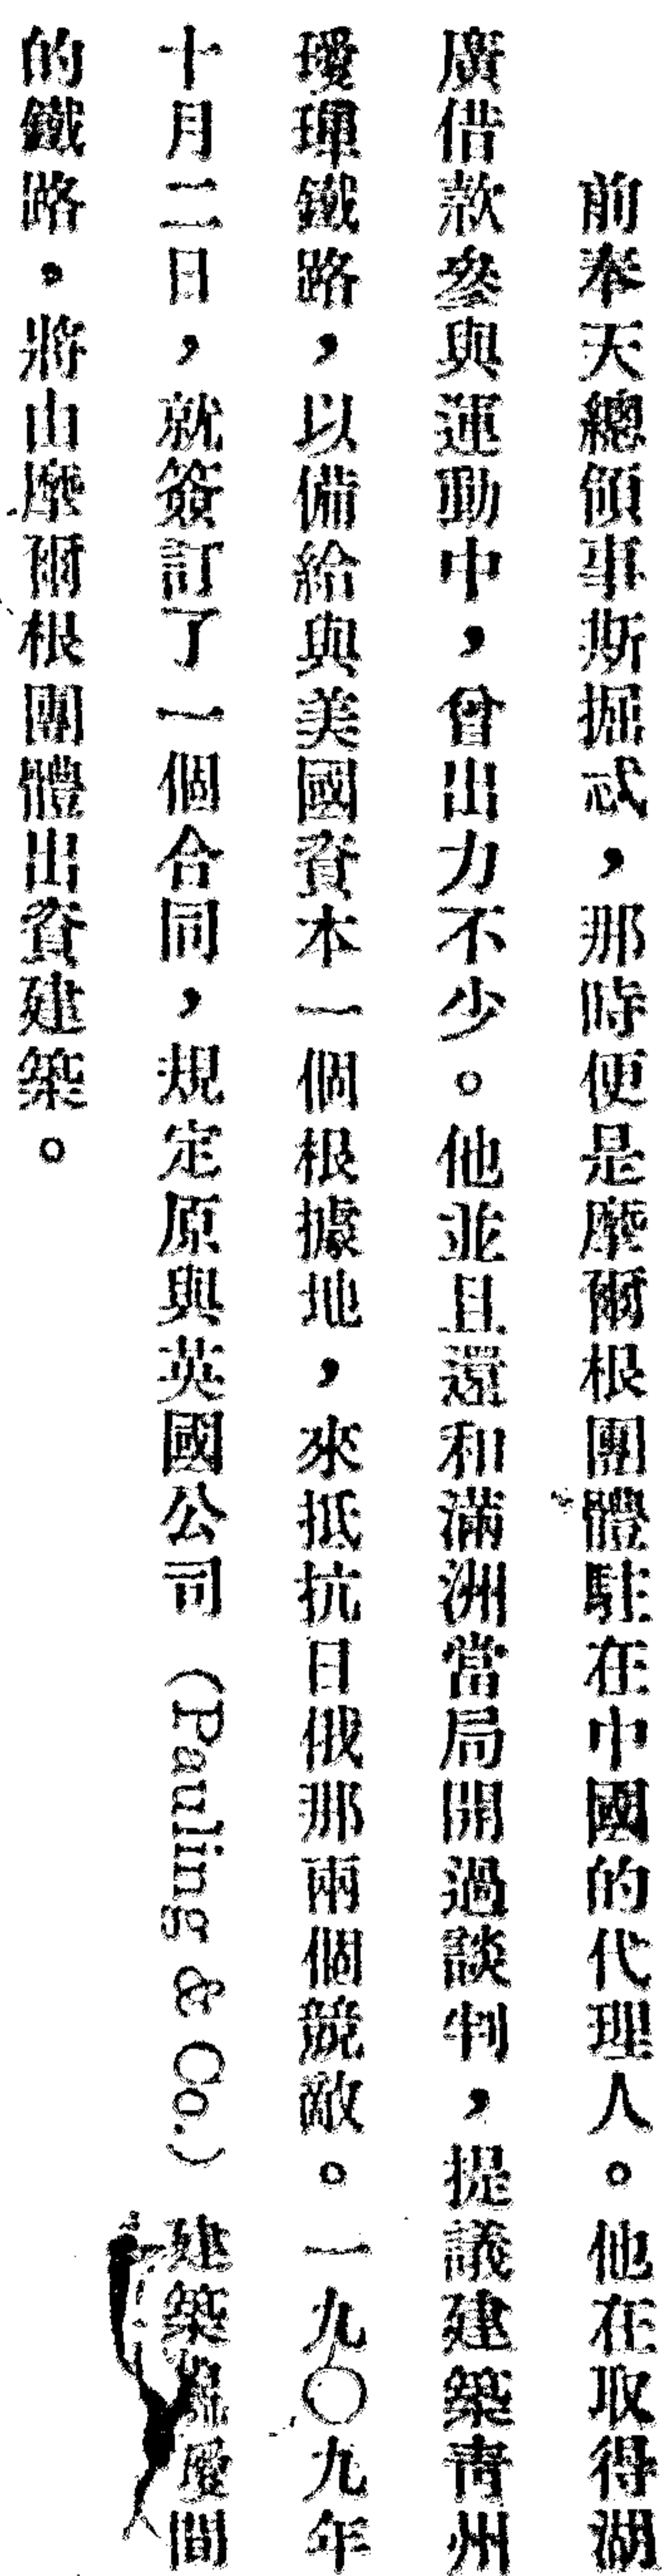 前奉天總領事斯掘忒，那時便是摩爾根團體駐在中國的代理人。他在取得湖
廣借款參與運動中，曾出力不少。他並且還和滿洲當局開過談判，提議建築青州
璦琿鐵路，以備給與美國資本一個根據地，來抵抗日俄那兩個競敵。一九〇九年
十月二日，就簽訂了一個合同，規定原與英國公司（Pauling & Co.）建築間
的鐵路，將由摩爾根團體出資建築。